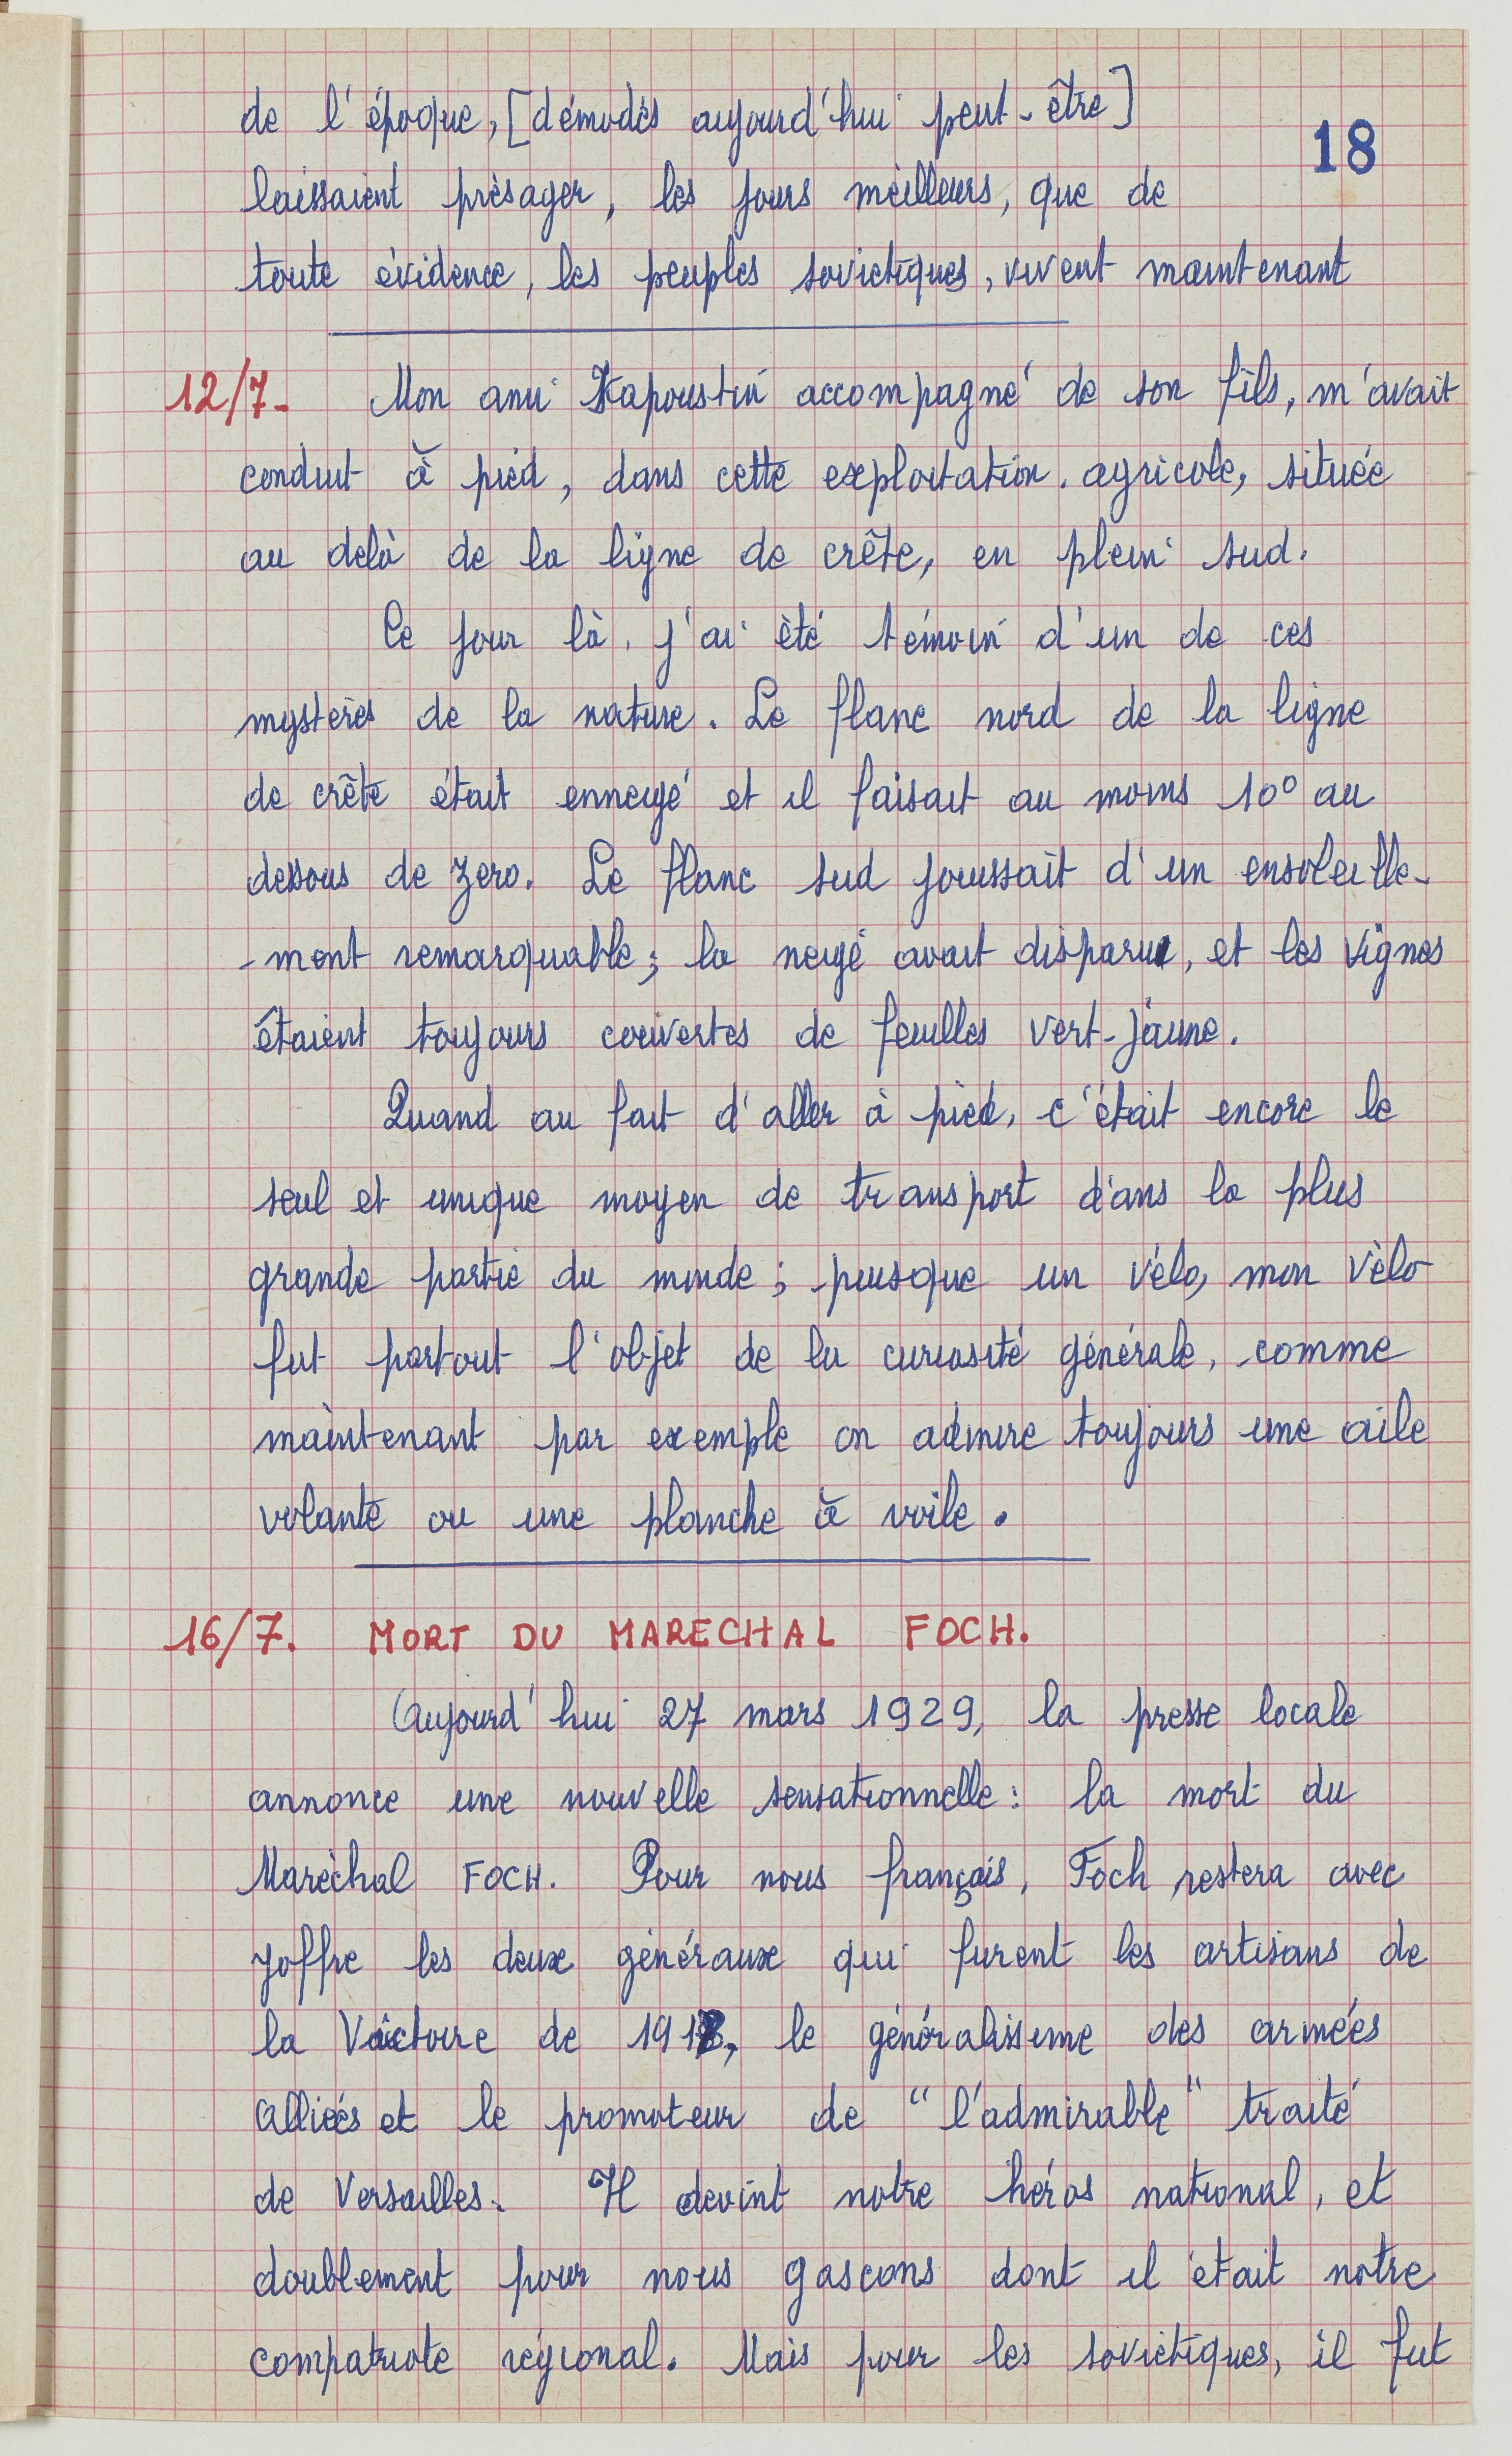 de l'époque, [démodés aujourd'hui peut-être]
18
laissaient présager, les jours meilleurs, que de
toute évidence, les peuples soviétiques, vivent maintenant
12/7- Mon ami Kapoustin accompagné de son fils, m'avait
conduit à pied, dans cette exploitation agricole, située
au delà de la ligne de crête, en plein sud.
Ce jour là, j'ai été témoin d'un de ces
mystères de la nature. Le flanc nord de la ligne
de crête était enneigé et il faisait au moins 10° au
dessous de zéro. Le flanc sud jouissait d'un ensoleille-
-ment remarquable; la neige avait disparu, et les vignes
étaient toujours couvertes de feuilles vert-jaune.
Quand au fait d'aller à pied, c'était encore le
seul et unique moyen de transport dans la plus
grande partie du monde; puisque un vélo, mon vélo
fut partout l'objet de la curiosité générale, comme
maintenant par exemple on admire toujours une aile
volante ou une planche à voile.
16/7. MORT DU MARECHAL FOCH.
Aujourd'hui 27 mars 1929, la presse locale
annonce une nouvelle sensationnelle: la mort du
Maréchal FOCH. Pour nous français, Foch restera avec
Joffre les deux généraux qui furent les artisans de
la Victoire de 1918, le généralissime des armées
Alliées et le promoteur de "l'admirable" traité
de Versailles. Il devint notre héros national, et
doublement pour nous gascons dont il était notre
compatriote régional. Mais pour les soviétiques, il fut